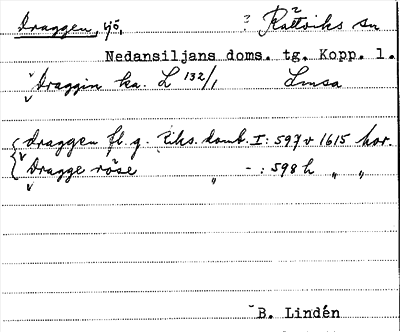 Draggen, sjö, ? Rättviks sn
Nedansiljans doms. tg. Kopp. l.
Draggin ka. L 132/1 Lmsa
draggen fl. g. Riks. domb. I: 597 v 1615 hor.
Dragge röse " - : 598 h " "
B. Lindén